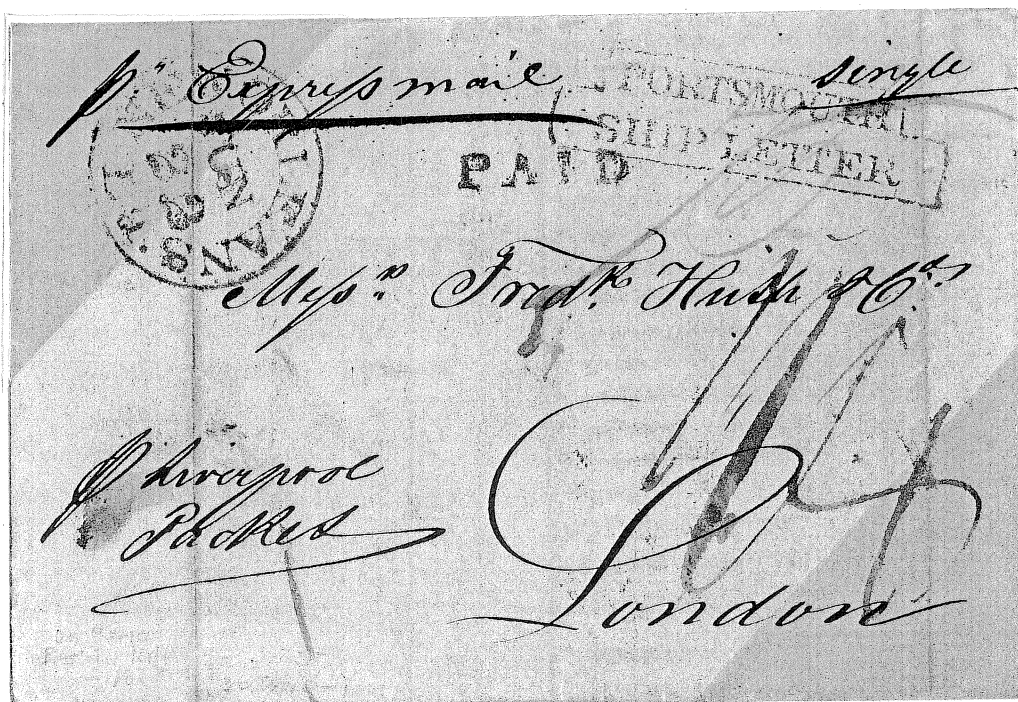 pr Express mail single
PORTSMOUTH
SHIP LETTER
PAID
ORLEANS
Messrs Fredk Huth & Co
p Liverpool
Packet
London